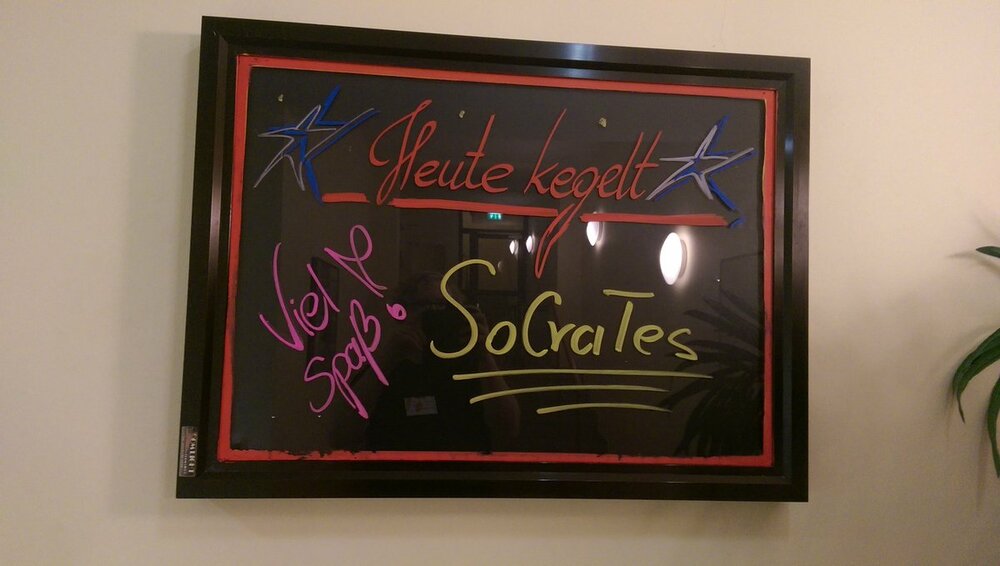 Heute kegelt
Viel
Spaß!
SoCraTes